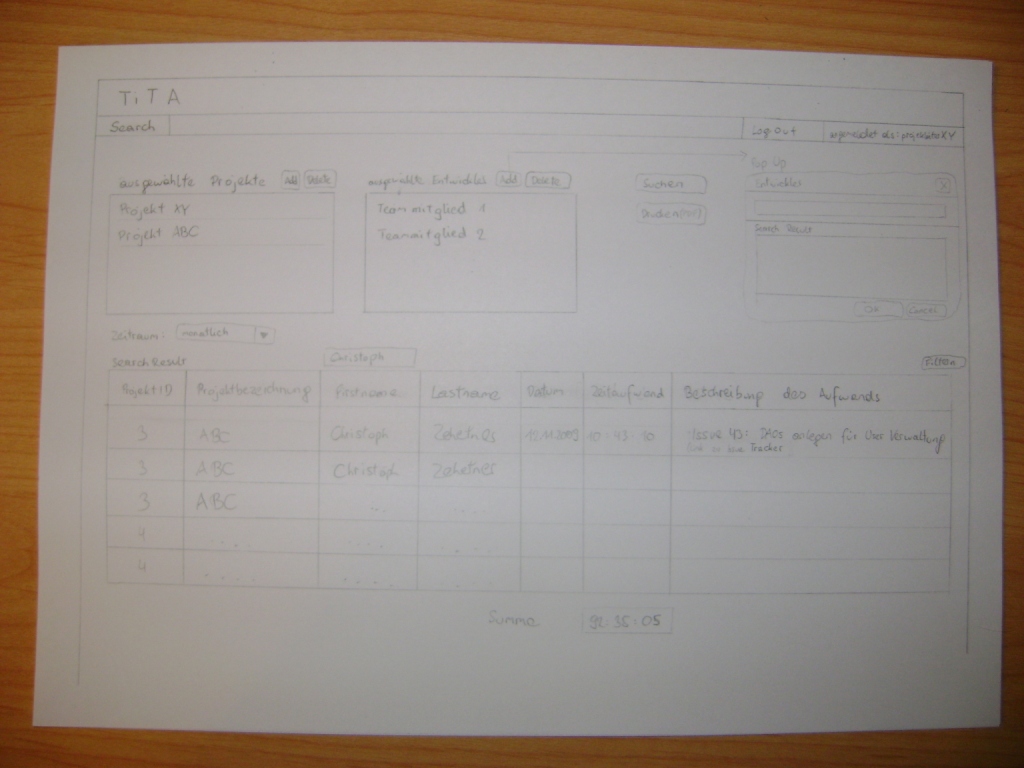 TiTA
Search
Log Out
angemeldet als: projektleiter XY
ausgewählte Projekte
Add
Delete
Projekt XY
Projekt ABC
ausgewählte Entwickler
Add
Delete
Teammitglied 1
Teammitglied 2
Suchen
Drucken
Pop Up
Entwickler
X
Search Result
OK
Cancel
Zeitraum: monatlich
Search Result
Christoph
Filtern
Projekt ID Projektbezeichnung Firstname Lastname Datum Zeitaufwand Beschreibung des Aufwands
3 ABC Christoph Zehetner 10:43:10 Issue 43: DAOs anlegen für User Verwaltung
Tracker
3 ABC Christoph Zehetner
3 ABC ... ....
4 .... .... ....
4 .... .... ....
Summe 92:35:05